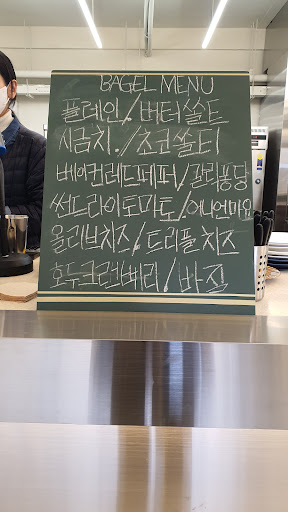 BAGEL MENU
플레인/버터쏠트
시금치/초코쏠티
베이컨레드페퍼/갈릭퐁당
썬드라이토마토/어니언마요
올리브치즈/트리플치즈
호두크런베리/바질